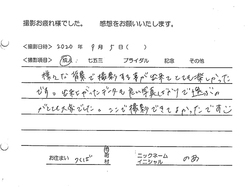 撮影お疲れ様でした。 感想をお願いいたします。
<撮影日時> 2020 年 9 月 5 日( )
<撮影項目> 成人 七五三 ブライダル 記念 その他
様々な背景で撮影する事が出来てとても楽しかった
です。出来上がったデータも
がとても大変でした。ここで撮影できてよかったです
お住まい つくば 市 ニックネーム イニシャル のあ